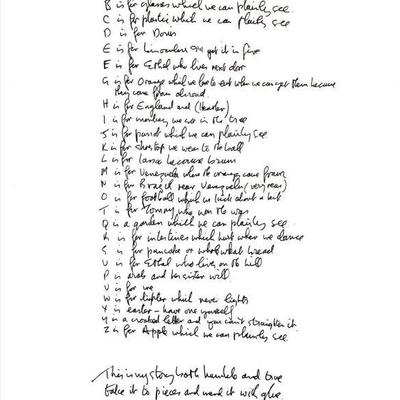 B is for glasses which we can plainly see
C is for plastic which we can plainly see
D is for Doris
E is for binoculars I'll get it in five
F is for Ethel who lives next door
G is for orange which we love to eat when we can get them because
they come from abroad
H is for England and (Heather)
I is for monkey we see in the tree
J is for parrot which we can plainly see
K is for shoetop we wear to the ball
L is for because brown
M is for Venezuela where the oranges come from
N is for Brazil near Venezuela (very near)
O is for football which we kick about a bit
T is for Tommy who won the war
Q is a garden which we can plainly see
R is for intestines which hurt when we dance
S is for pancake or whole-wheat bread
U is for Ethel who lives on the hill
P is arab and her sister will
V is for me
W is for lighter which never lights
X is easter - have one yourself
Y is a crooked letter and you can't straighten it
Z is for Apple which we can plainly see
This is my story both humble and true
take it to pieces and mend it with glue